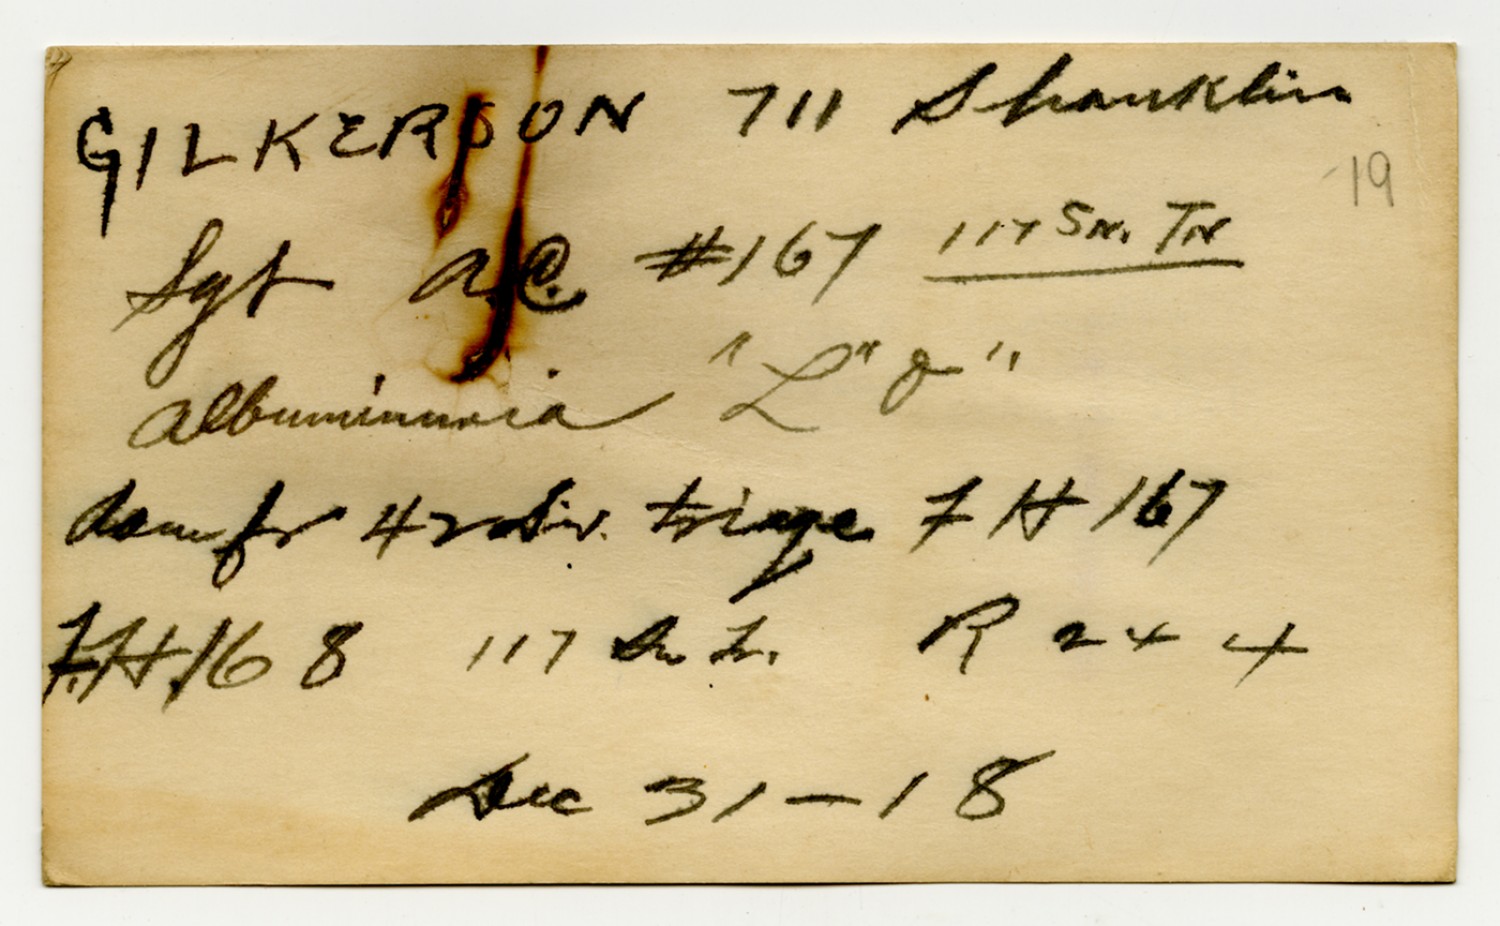 GILKERSON 711 Shanklin
19
Sgt A.C. #167 117 Sn. Tn
Albuminuria "L" "
42 Div. triage F H 167
F.H. 168 117 Sn Tr. R 244
Dec 31-18